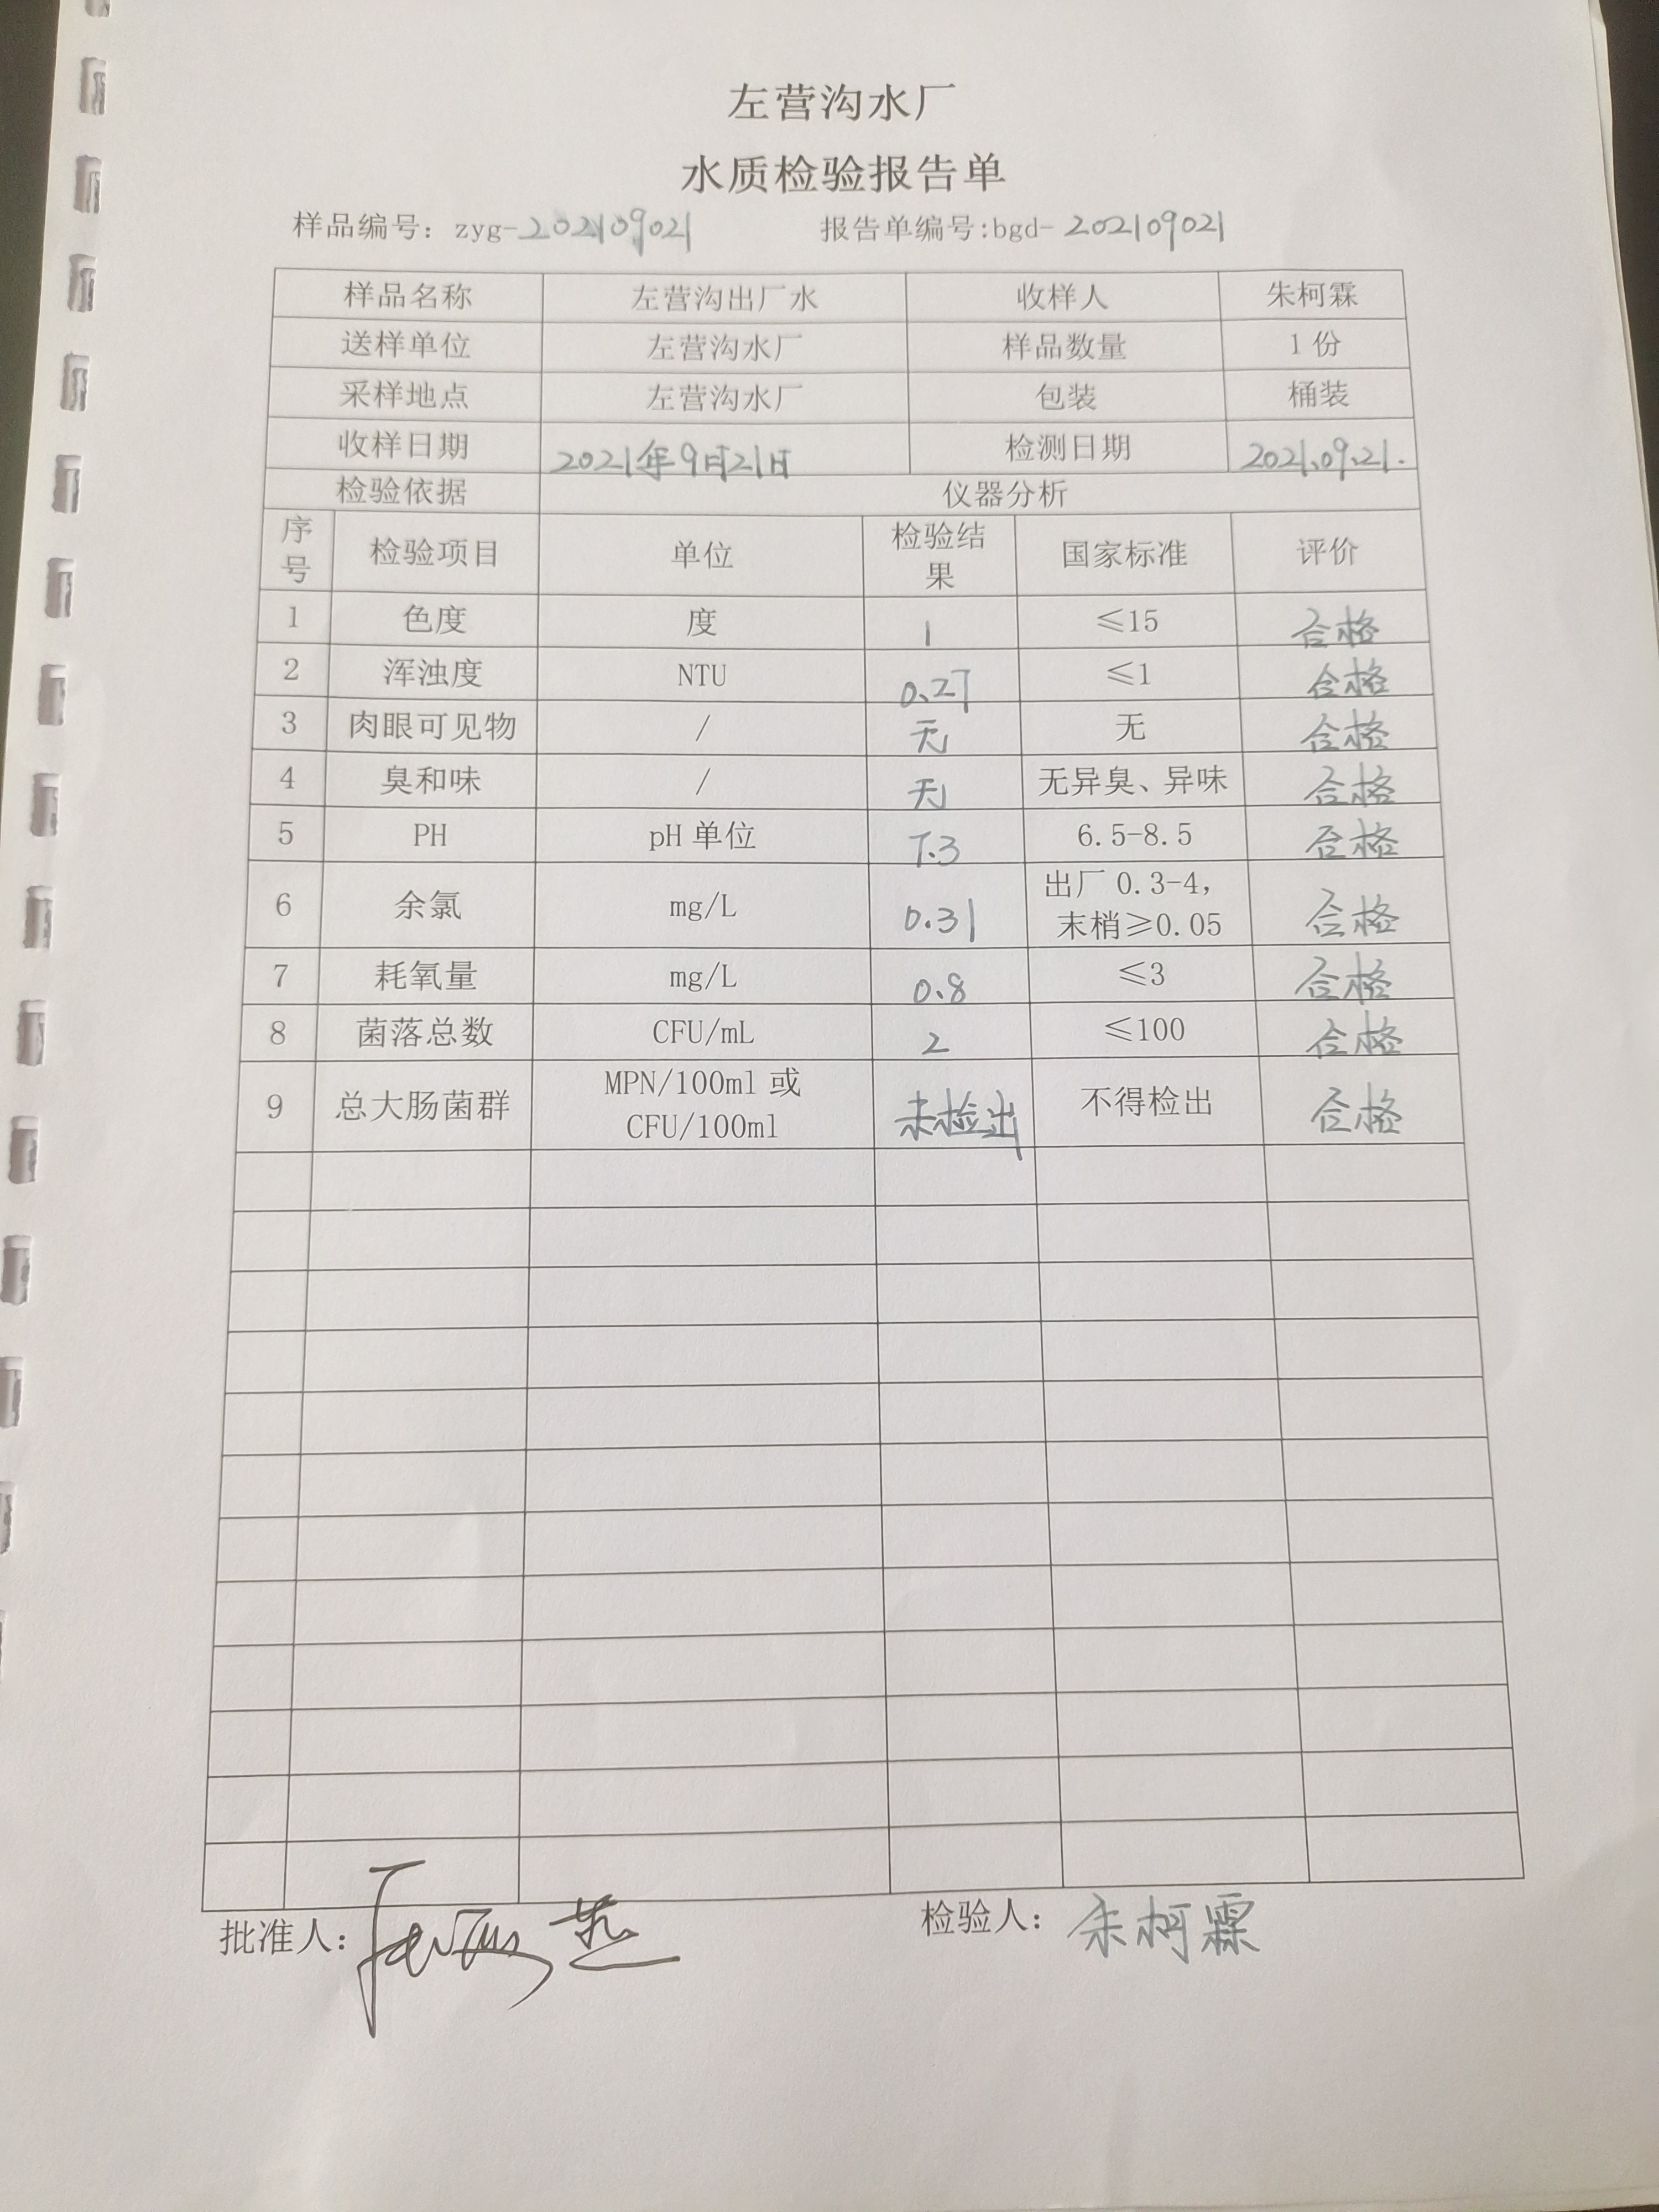 左营沟水厂
水质检验报告单
样品编号：zyg-202109021 报告单编号:bgd-202109021
样品名称 左营沟出厂水 收样人 朱柯霖
送样单位 左营沟水厂 样品数量 1份
采样地点 左营沟水厂 包装 桶装
收样日期 2021年9月21日 检测日期 2021.09.21.
检验依据 仪器分析
序号 检验项目 单位 检验结果 国家标准 评价
1 色度 度 1 ≤15 合格
2 浑浊度 NTU 0.27 ≤1 合格
3 肉眼可见物 / 无 无 合格
4 臭和味 / 无 无异臭、异味 合格
5 PH pH单位 7.3 6.5-8.5 合格
6 余氯 mg/L 0.31 出厂0.3-4，末梢≥0.05 合格
7 耗氧量 mg/L 0.8 ≤3 合格
8 菌落总数 CFU/mL 2 ≤100 合格
9 总大肠菌群 MPN/100ml或CFU/100ml 未检出 不得检出 合格
批准人： 检验人：朱柯霖